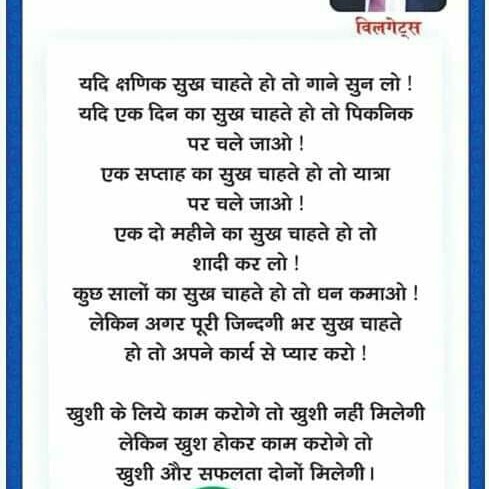 विलगेट्स
यदि क्षणिक सुख चाहते हो तो गाने सुन लो !
यदि एक दिन का सुख चाहते हो तो पिकनिक
पर चले जाओ !
एक सप्ताह का सुख चाहते हो तो यात्रा
पर चले जाओ !
एक दो महीने का सुख चाहते हो तो
शादी कर लो !
कुछ सालों का सुख चाहते हो तो धन कमाओ !
लेकिन अगर पूरी जिन्दगी भर सुख चाहते
हो तो अपने कार्य से प्यार करो !
खुशी के लिये काम करोगे तो खुशी नहीं मिलेगी
लेकिन खुश होकर काम करोगे तो
खुशी और सफलता दोनों मिलेगी।